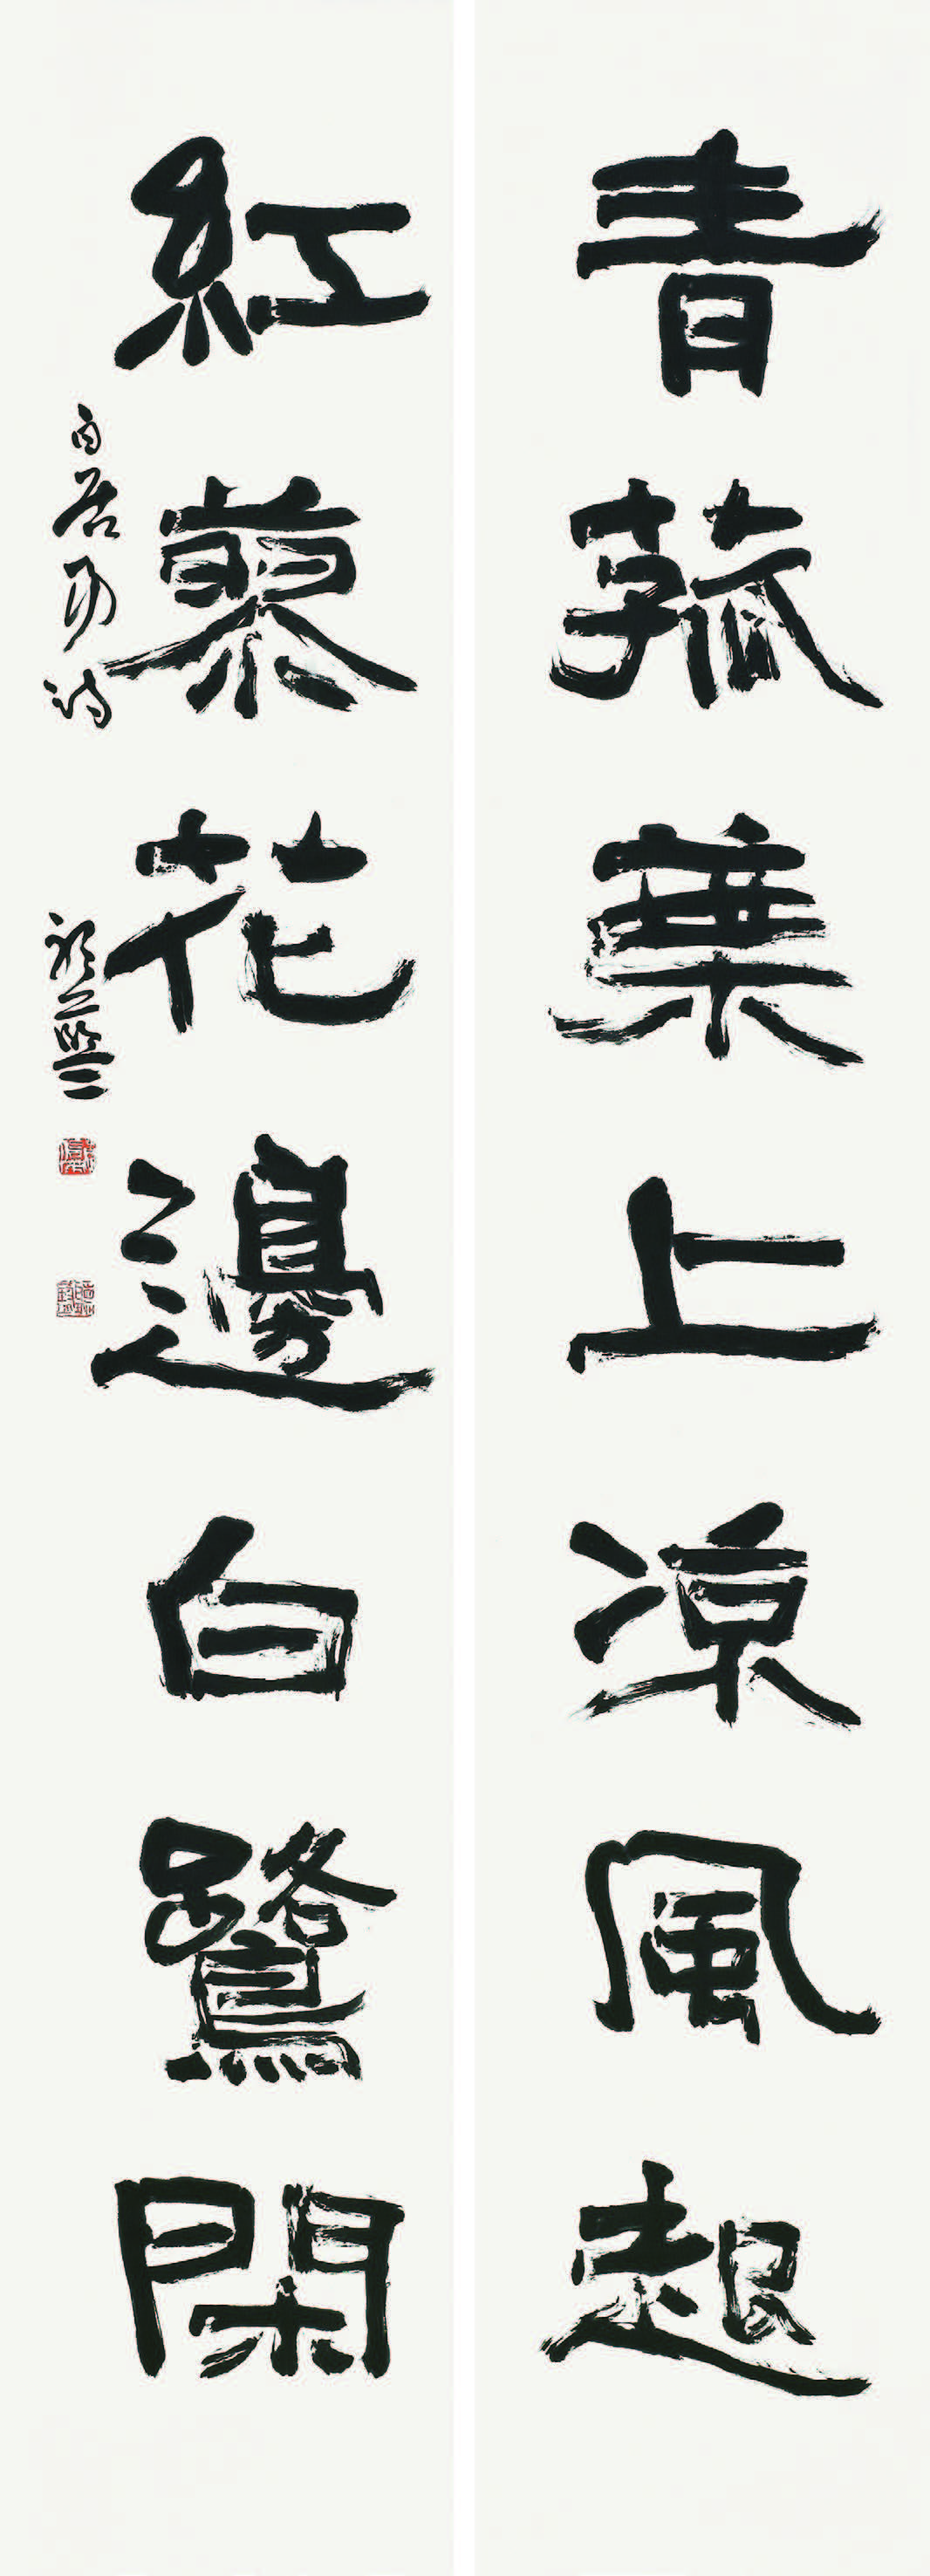 青菰葉上涼風起
紅蓼花邊白鷺閑
白居易詩